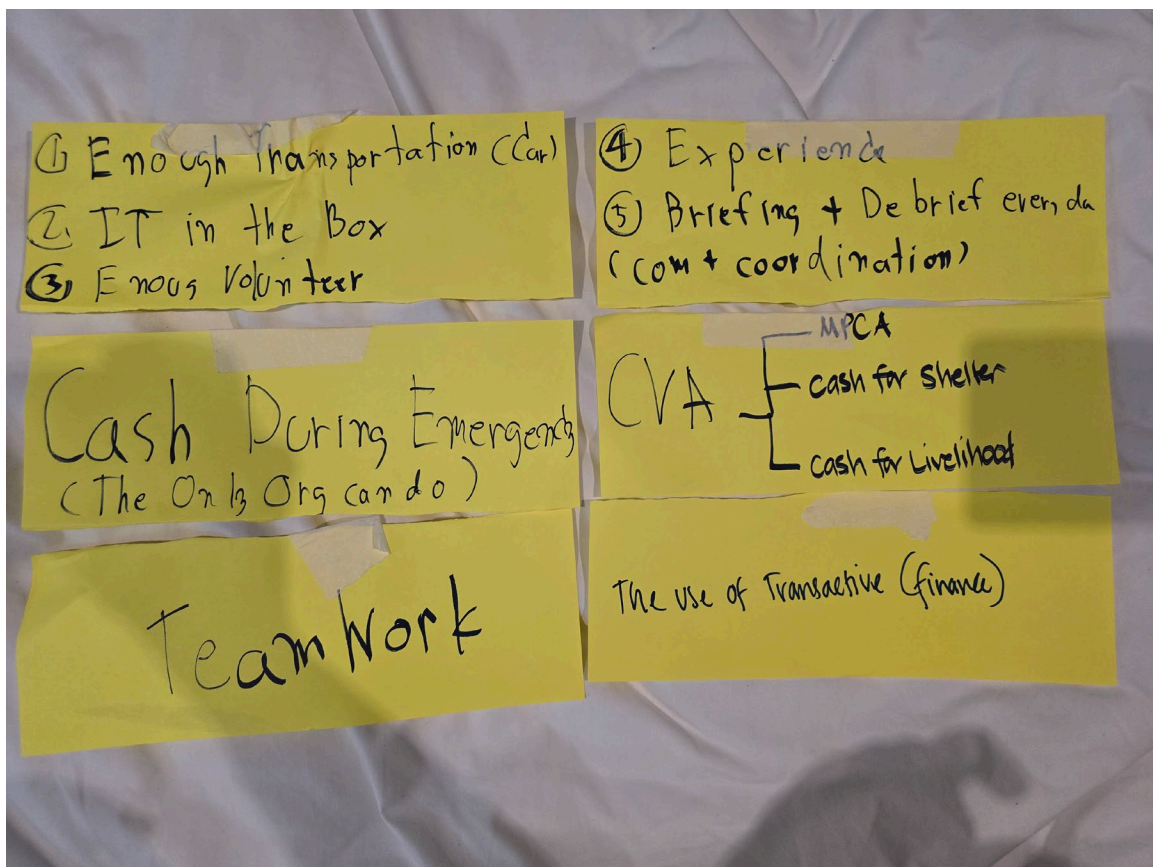 ① Enough Transportation (Car)
②. IT in the Box
③ Enoug Volunteer
④ Experience
⑤ Briefing + Debrief every da
(com + coordination)
Cash During Emergency
(The Only Org can do)
CVA
MPCA
cash for shelter
cash for Livelihood
TeamWork
The use of Transactive (finance)